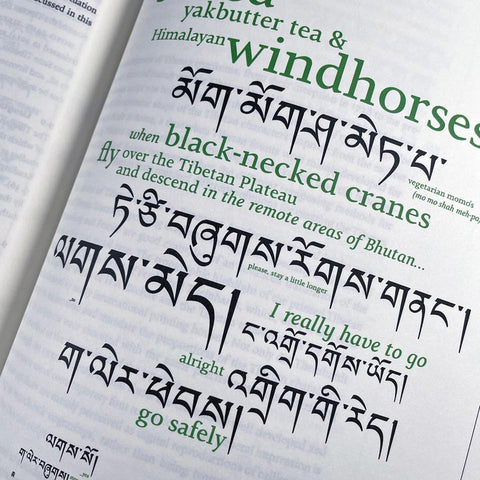 yakbutter tea &
Himalayan windhorses
མོག་མོག་ཤ་མེད་པ་
vegetarian momos
when black-necked cranes
fly over the Tibetan Plateau
and descend in the remote areas of Bhutan...
ཏེ་ཙི་བཞུགས་རོགས་གནང་།
please, stay a little longer
ལགས་མེད།
I really have to go
ང་འགྲོ་དགོས་ཡོད།
alright འགྲིག་གི་རེད།
ག་ལེར་ཕེབས།
go safely
ལགས་སོ
ག་ལེར་བཞུགས།